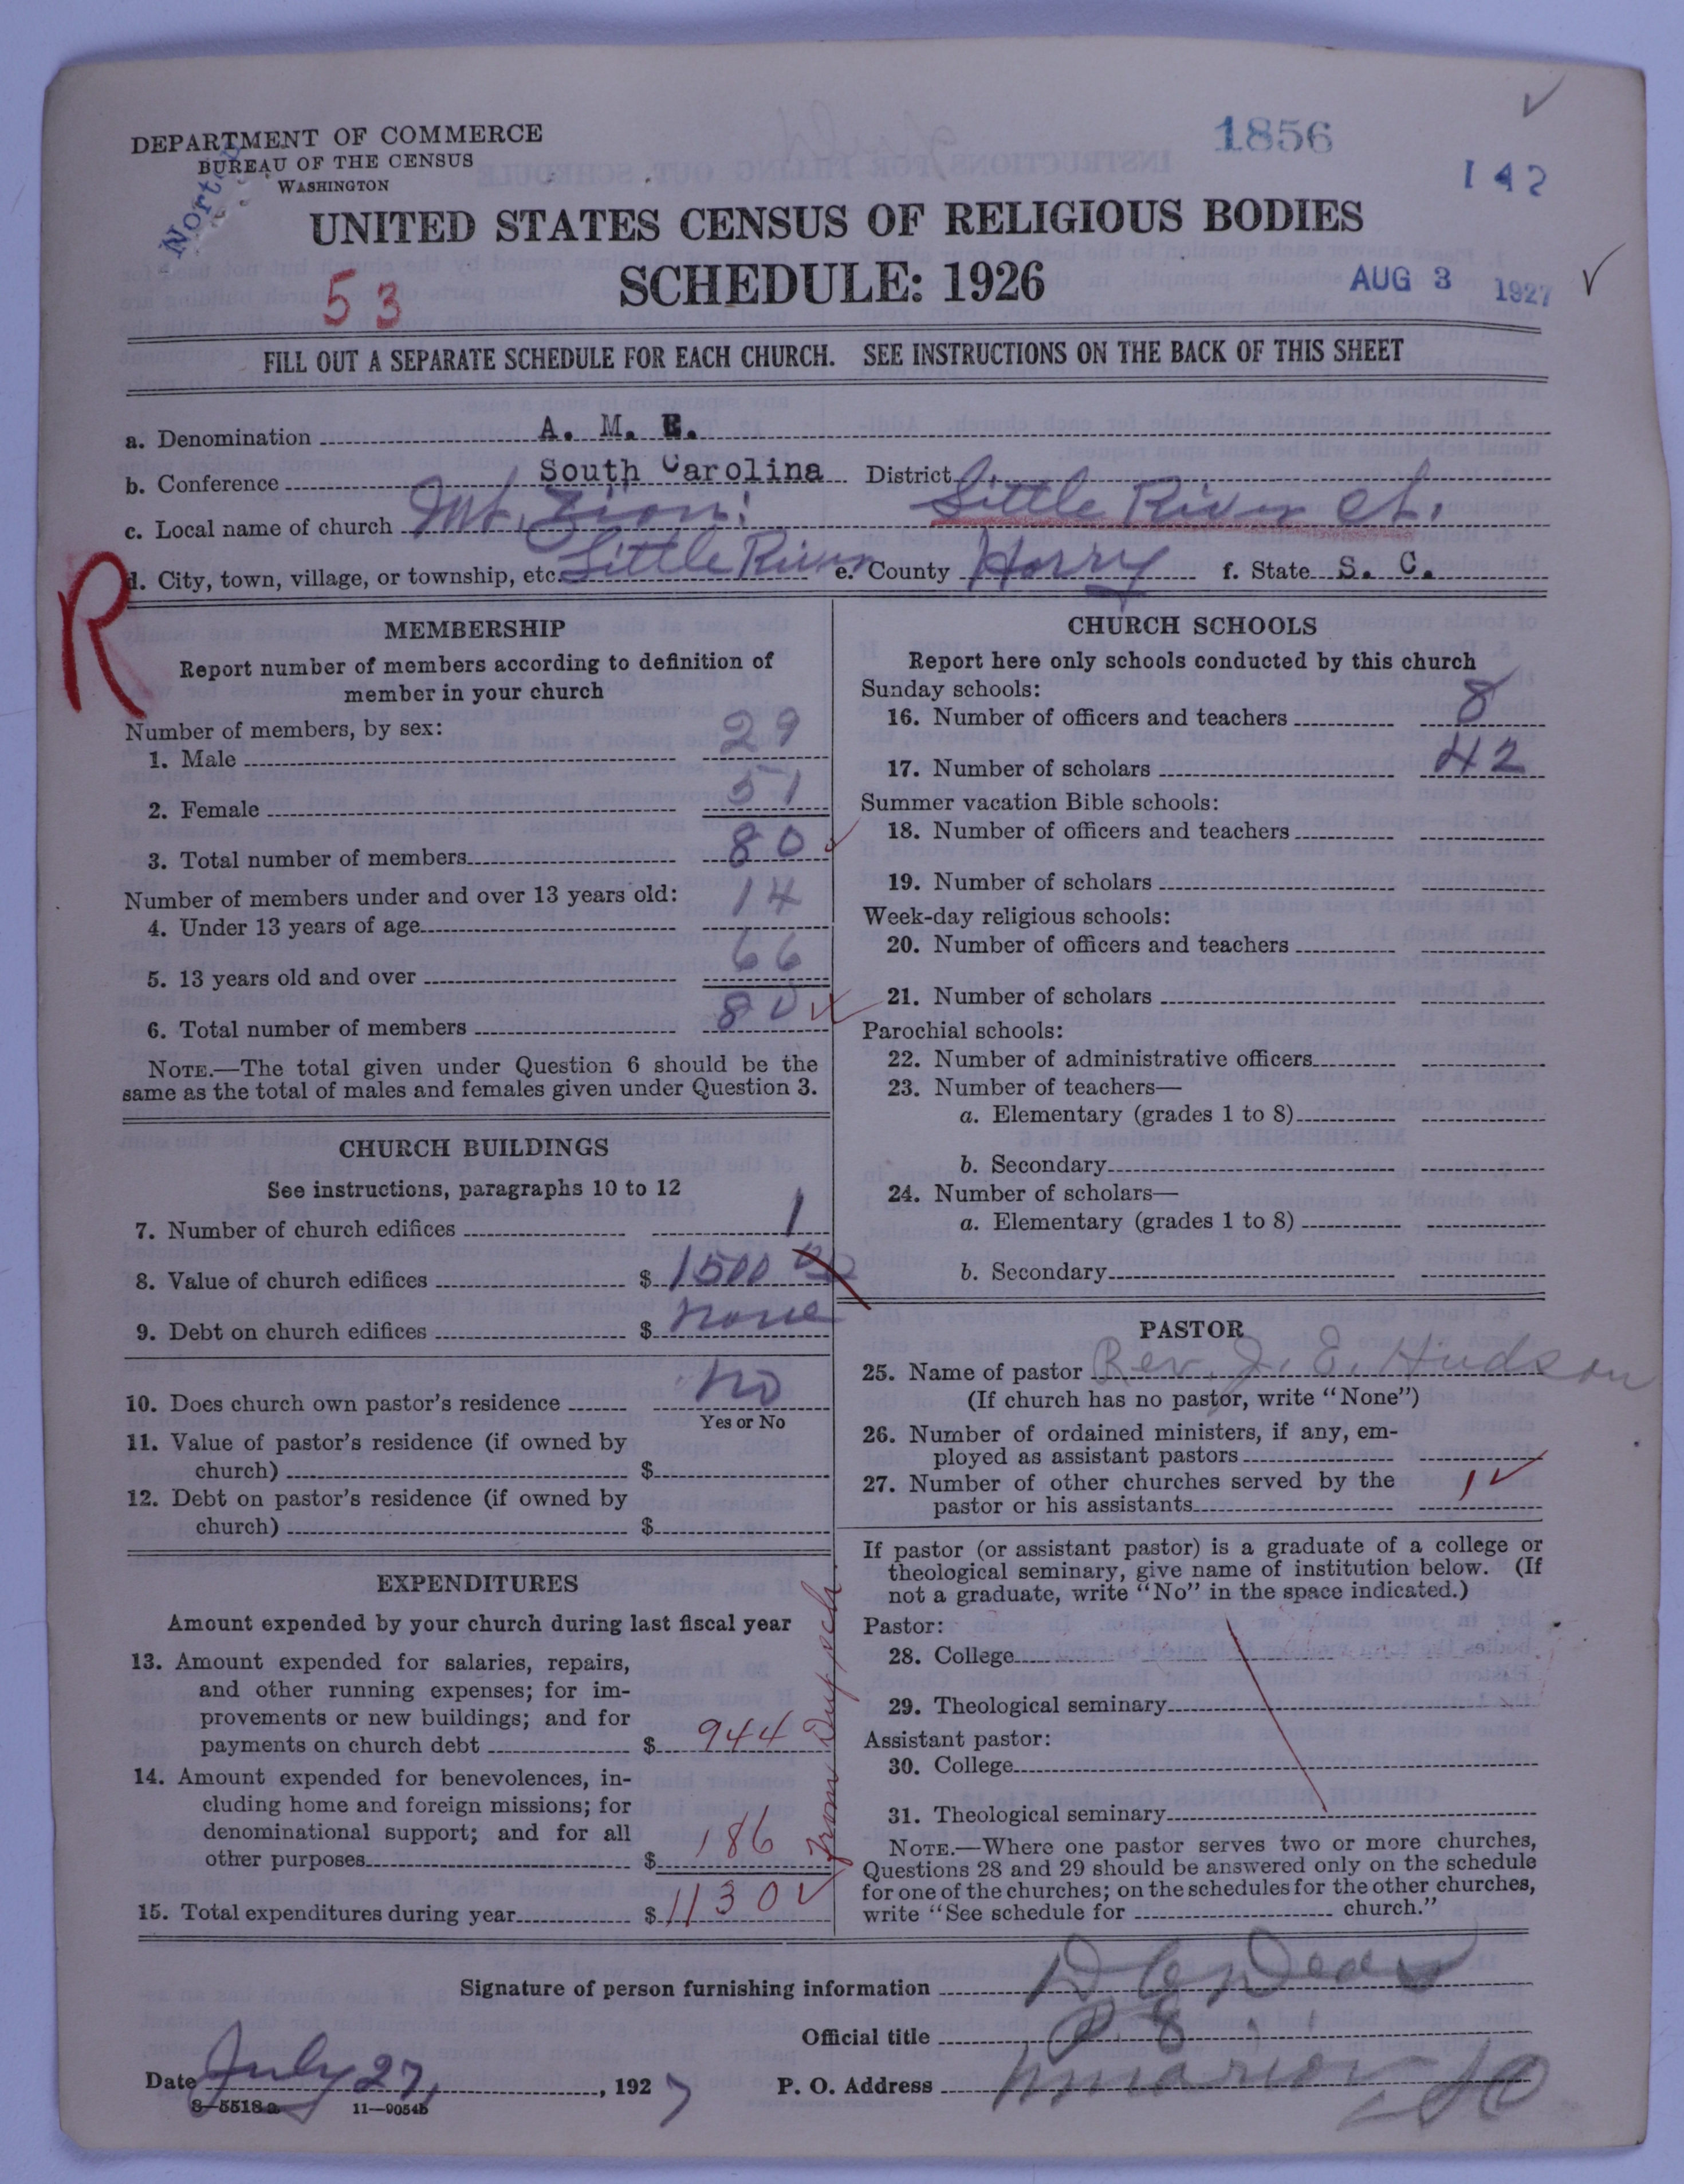 DEPARTMENT OF COMMERCE
BUREAU OF THE CENSUS
WASHINGTON
1856
142
UNITED STATES CENSUS OF RELIGIOUS BODIES
SCHEDULE: 1926
53
AUG 3 1927
FILL OUT A SEPARATE SCHEDULE FOR EACH CHURCH. SEE INSTRUCTIONS ON THE BACK OF THIS SHEET
a. Denomination A. M. E.
b. Conference South Carolina District Little River Ct.
c. Local name of church Mt. Zion
d. City, town, village, or township, etc. Little River e. County Horry f. State S. C.
R
MEMBERSHIP
Report number of members according to definition of
member in your church
Number of members, by sex:
1. Male 29
2. Female 51
3. Total number of members 80
Number of members under and over 13 years old:
4. Under 13 years of age 14
5. 13 years old and over 66
6. Total number of members 80
NOTE.—The total given under Question 6 should be the
same as the total of males and females given under Question 3.
CHURCH BUILDINGS
See instructions, paragraphs 10 to 12
7. Number of church edifices 1
8. Value of church edifices $ 1500 00
9. Debt on church edifices $ none
10. Does church own pastor's residence No
Yes or No
11. Value of pastor's residence (if owned by
church) $
12. Debt on pastor's residence (if owned by
church) $
EXPENDITURES
Amount expended by your church during last fiscal year
13. Amount expended for salaries, repairs,
and other running expenses; for im-
provements or new buildings; and for
payments on church debt $ 944
14. Amount expended for benevolences, in-
cluding home and foreign missions; for
denominational support; and for all
other purposes $ 186
15. Total expenditures during year $ 1130
from Dup sch
CHURCH SCHOOLS
Report here only schools conducted by this church
Sunday schools:
16. Number of officers and teachers 8
17. Number of scholars 42
Summer vacation Bible schools:
18. Number of officers and teachers
19. Number of scholars
Week-day religious schools:
20. Number of officers and teachers
21. Number of scholars
Parochial schools:
22. Number of administrative officers
23. Number of teachers—
a. Elementary (grades 1 to 8)
b. Secondary
24. Number of scholars—
a. Elementary (grades 1 to 8)
b. Secondary
PASTOR
25. Name of pastor Rev. J. E. Hudson
(If church has no pastor, write "None")
26. Number of ordained ministers, if any, em-
ployed as assistant pastors
27. Number of other churches served by the
pastor or his assistants 1
If pastor (or assistant pastor) is a graduate of a college or
theological seminary, give name of institution below. (If
not a graduate, write "No" in the space indicated.)
Pastor:
28. College
29. Theological seminary
Assistant pastor:
30. College
31. Theological seminary
NOTE.—Where one pastor serves two or more churches,
Questions 28 and 29 should be answered only on the schedule
for one of the churches; on the schedules for the other churches,
write "See schedule for church."
Signature of person furnishing information
Official title P E
Date July 27, 1927 P. O. Address Marion SC
8—5518a 11—9054b